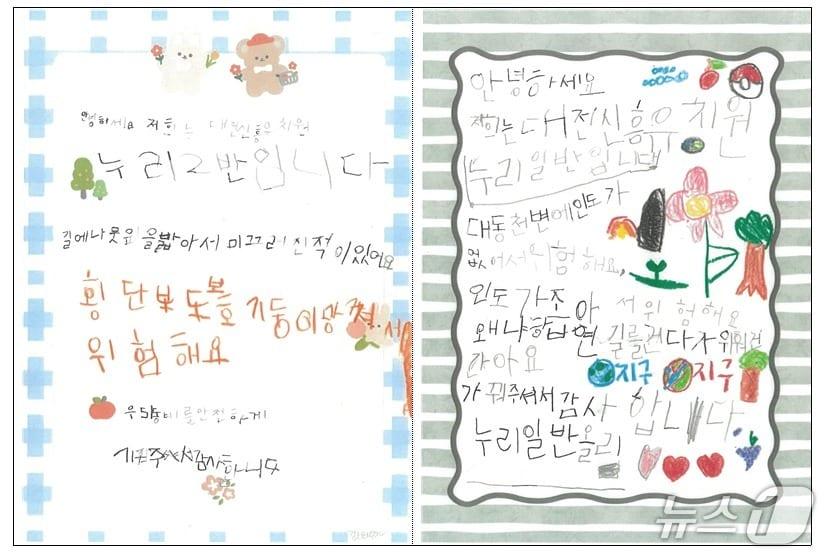 안녕하세요 저희는 대전신흥유치원
누리2반입니다
길에 나뭇잎을 밟아서 미끄러진적이있어요
횡단보도 보호 기둥이 망가져서
위험해요
우리동네를안전하게
감사합니다
안녕하세요
저희는 대전신흥유치원
누리일반입니다
대동천변에인도가
없어서위험해요,
인도가조아서위험해요
왜냐하면 길을건다가
같아요
지구 지구
가꿔주셔서감사합니다
누리일반올림
뉴스1